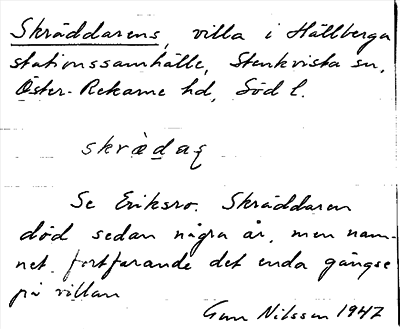 Skräddarens, villa i Hällberga
stationssamhälle, Stenkvista sn,
Öster-Rekarne hd, Söd l.
skrä̀daɽ
Se Eriksro. Skräddaren
död sedan några år, men nam-
net fortfarande det enda gängse
på villan
Gun Nilsson 1947